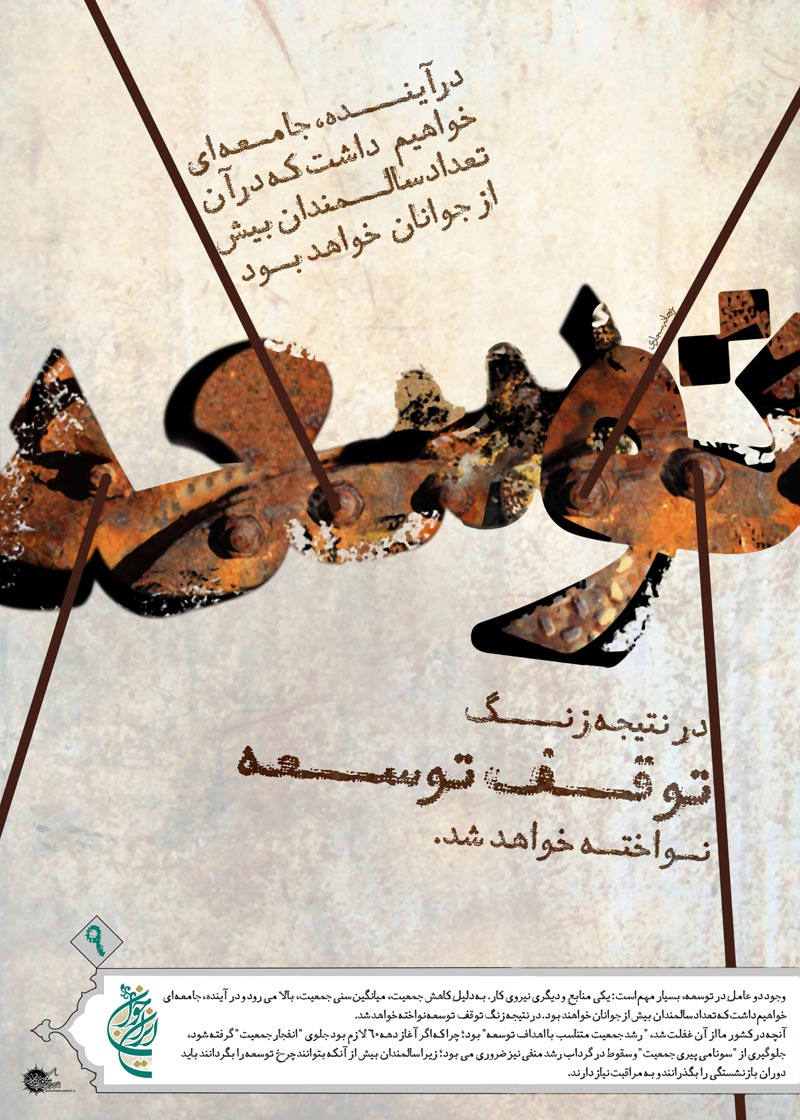 در آینده، جامعه‌ای
خواهیم داشت که در آن
تعداد سالمندان بیش
از جوانان خواهد بود
توسعه
در نتیجه زنگ
توقف توسعه
نواخته خواهد شد.
۹
وجود دو عامل در توسعه، بسیار مهم است: یکی منابع و دیگری نیروی کار. به دلیل کاهش جمعیت، میانگین سنی جمعیت، بالا می رود و در آینده، جامعه ای
خواهیم داشت که تعداد سالمندان بیش از جوانان خواهند بود. در نتیجه زنگ توقف توسعه نواخته خواهد شد.
آنچه در کشور ما از آن غفلت شد، "رشد جمعیت متناسب با اهداف توسعه" بود؛ چرا که اگر آغاز دهه ۶۰ لازم بود جلوی "انفجار جمعیت" گرفته شود،
جلوگیری از "سونامی پیری جمعیت" و سقوط در گرداب رشد منفی نیز ضروری می بود؛ زیرا سالمندان بیش از آنکه بتوانند چرخ توسعه را بگردانند باید
دوران بازنشستگی را بگذرانند و به مراقبت نیاز دارند.
ایران جوان